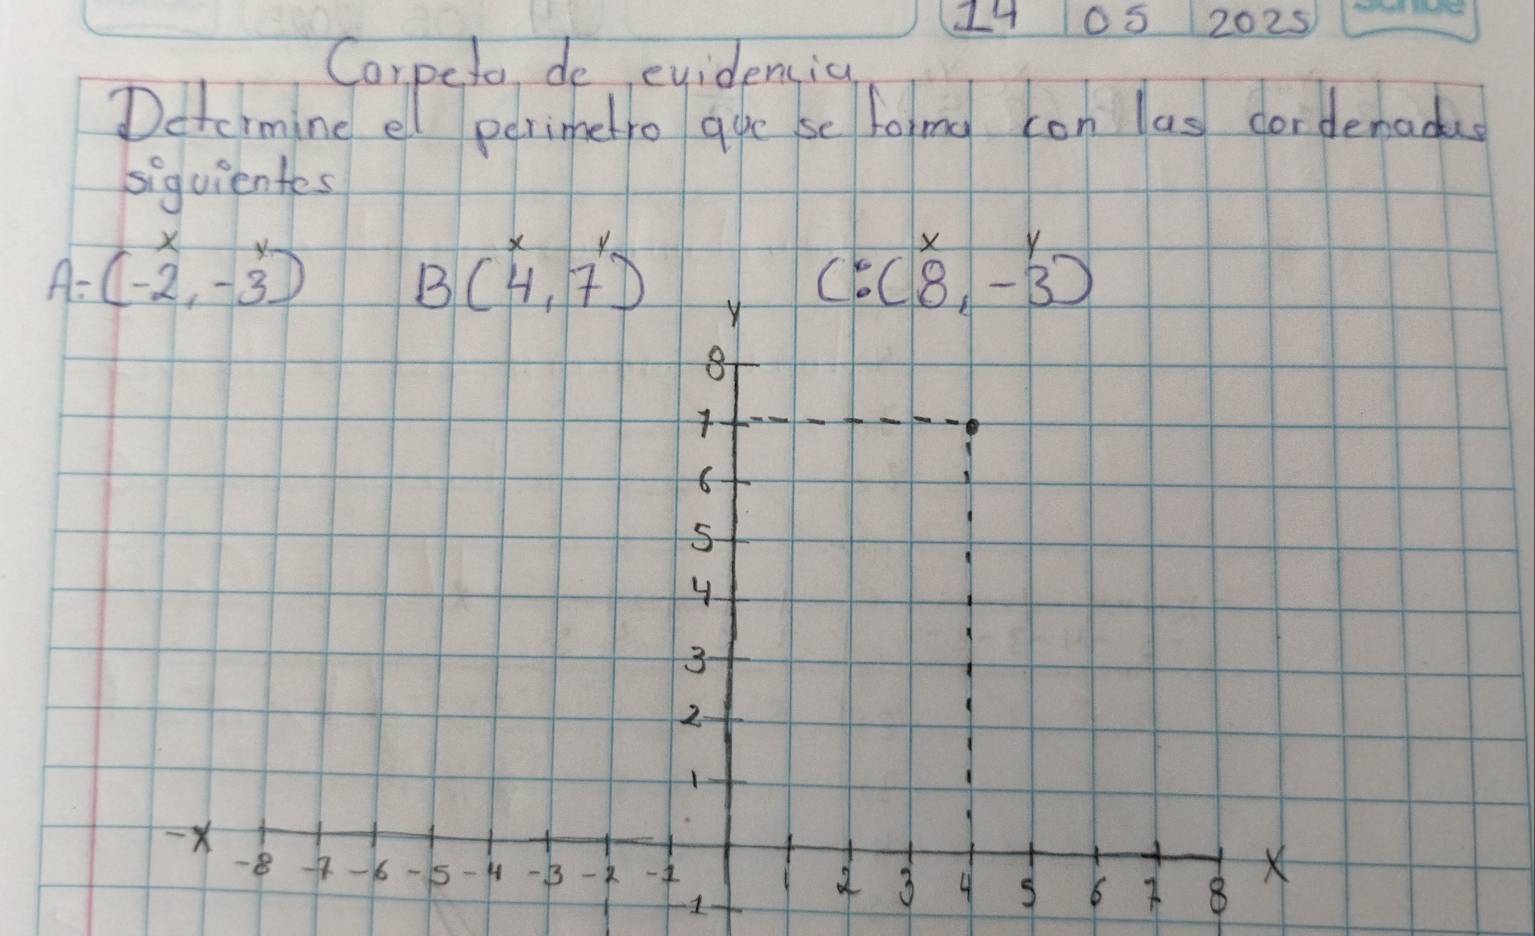 14 05 2025
Carpeta de evidencia
Determine el perimetro que se forma con las cordenadas
siguientes
x y x y x y
A=(-2,-3) B(4,7) C:(8,-3)
y
8
7
6
5
4
3
2
1
-x -8 -7 -6 -5 -4 -3 -2 -1 1 2 3 4 5 6 7 8 x
-1